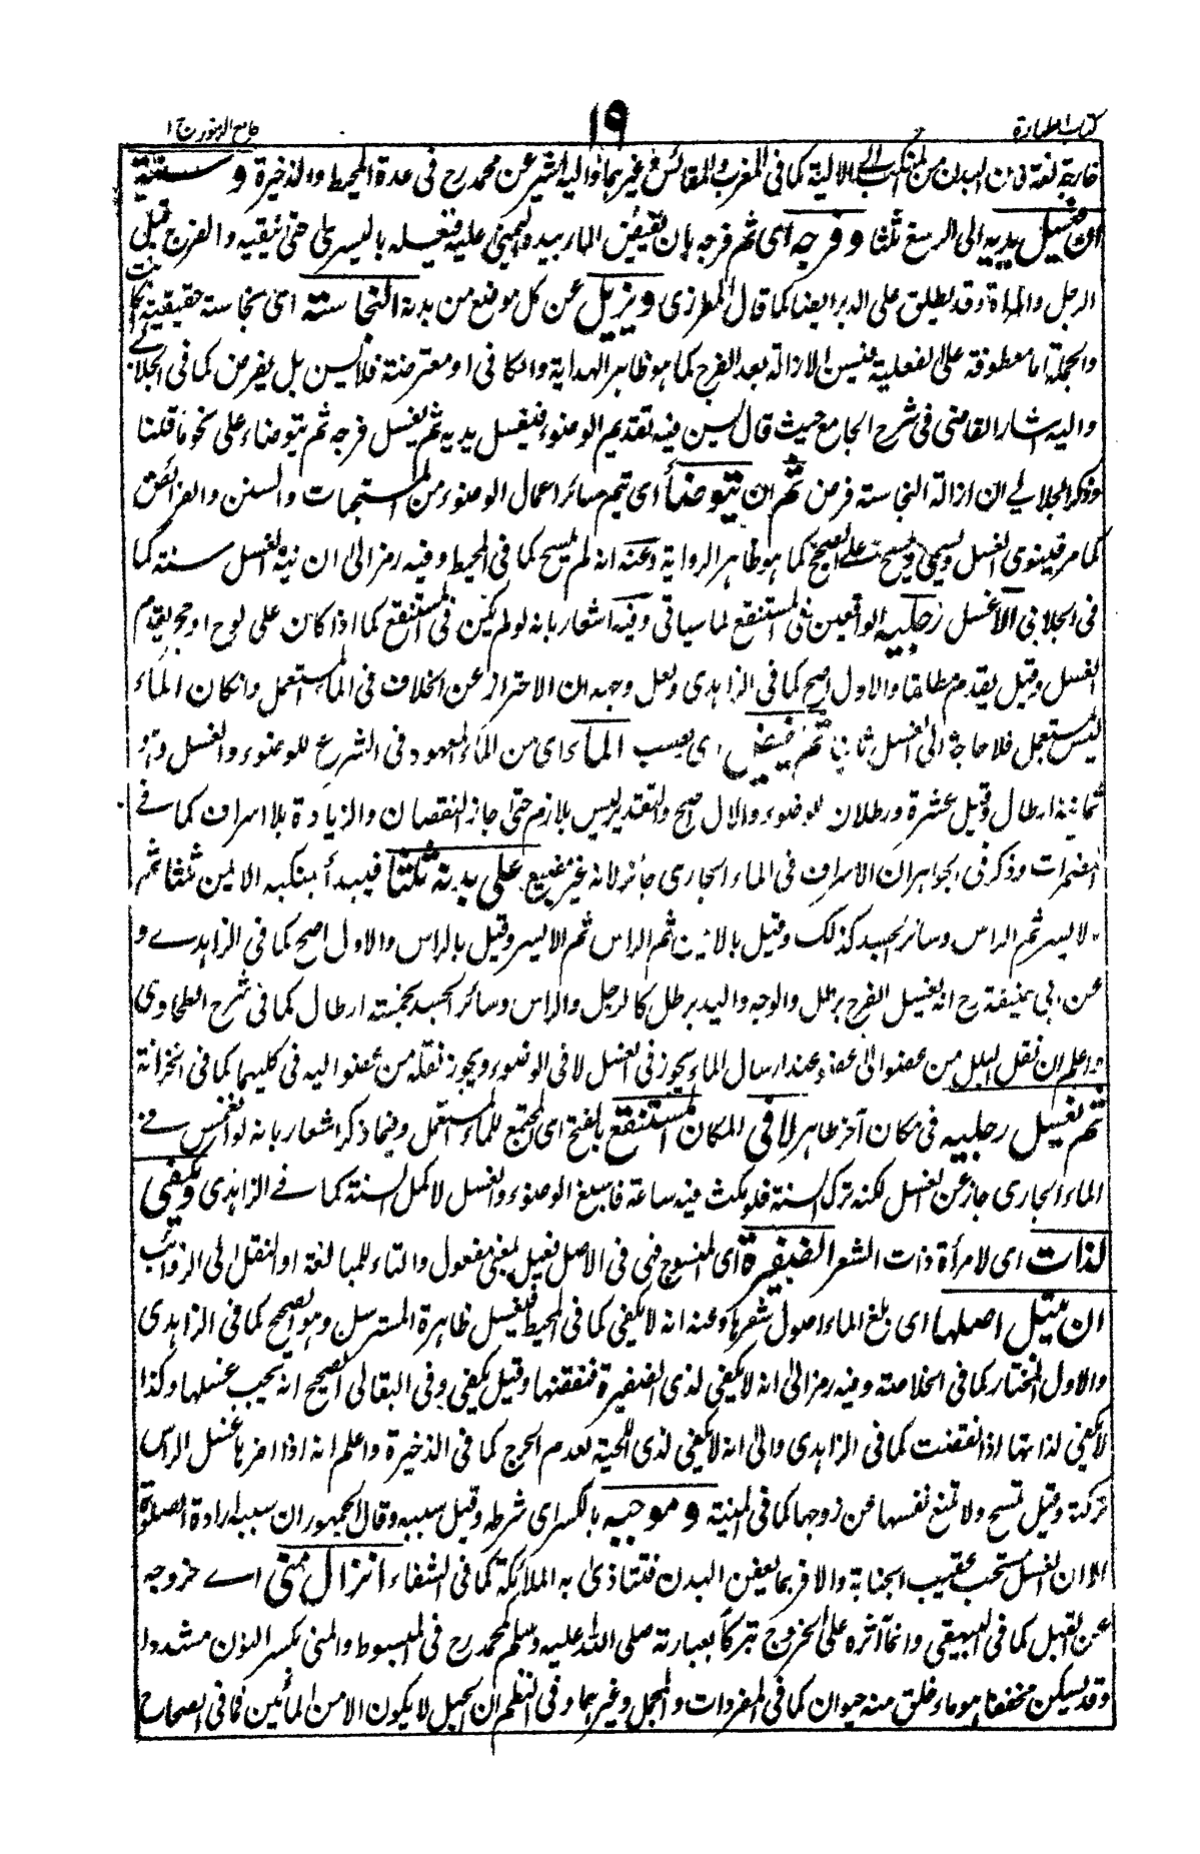 كتاب الطهارة
١٩
جامع الرموز ج ١
خارجة لغة فان البدن من المنكب الى الالية كما في المغرب والمقائس وغيرهما واليه اشير عن محمد رح في عدة المحيط والذخيرة و سنته
ان يغسل يديه الى الرسغ ثلثا و فرجه اى ثم فرجه بان يفيض الماء بيده اليمنى عليه فيغسله باليسرى حتى ينقيه والفرج قبل
الرجل والمرأة وقد يطلق على الدبر ايضا كما قال المطرزى ويزيل عن كل موضع من بدنه النجاسة اى نجاسة حقيقية
والجملة اما معطوفة على الفعلية فيسن الازالة بعد الفرج كما هو ظاهر الهداية والكافى او معترضة فلا يسن بل يفرض كما فى الجلابى
واليه اشار القاضى فى شرح الجامع حيث قال يسن فيه تقديم الوضوء فيغسل يديه ثم يغسل فرجه ثم يتوضاء على نحو ما قلنا
وذكر الجلابي ان ازالة النجاسة فرض ثم ان يتوضأ اى يتم سائر اعمال الوضوء من المستحبات والسنن والفرائض
كما مر فينوى الغسل ويسمى ويمسح على الصحيح كما هو ظاهر الرواية وعنه انه لم يمسح كما فى المحيط وفيه رمز الى ان نية الغسل سنة كما
فى الجلابى الا غسل رجليه الواقعين فى المستنقع لما سياتى وفيه اشعار بانه لو لم يكن فى المستنقع كما اذا كان على لوح او حجر يقدم
الغسل وقيل يقدم مطلقا والاول اصح كما فى الزاهدى ولعل وجهه ان الاحتراز عن الخلاف فى الماء المستعمل وان كان الماء
ليس بمستعمل فلا حاجة الى الغسل ثانيا ثم يفيض اى يصب الماء اى من الماء المعهود فى الشرع للوضوء والغسل وهو
ثمانية ارطال وقيل عشرة ورطلان للوضوء والاول اصح والتقدير ليس بلازم حتى جاز النقصان والزيادة بلا اسراف كما فى
المضمرات وذكر فى الجواهر ان الاسراف فى الماء الجارى جائز لانه غير مضيع على بدنه ثلثا فيبدأ بمنكبه الايمن ثلثا ثم
الايسر ثم الراس وسائر الجسد كذلك وقيل بالايمن ثم الراس ثم الايسر وقيل بالراس والاول اصح كما فى الزاهدى و
عن ابى حنيفة رح انه يغسل الفرج برطل والوجه واليد برطل كالرجل والراس وسائر الجسد بخمسة ارطال كما فى شرح الطحاوى
واعلم ان نقل البلل من عضو الى عضو عند ارسال الماء يجوز فى الغسل لا فى الوضوء ويجوز نقله من عضو اليه فى كليهما كما فى الخزانة
ثم يغسل رجليه فى مكان آخر طاهر لا فى المكان المستنقع بالفتح اى المجتمع للماء المستعمل وفيما ذكر اشعار بانه لو انغمس فى
الماء الجارى جاز عن الغسل لكنه ترك السنة فلو مكث فيه ساعة فاسبغ الوضوء والغسل لاكمل السنة كما فى الزاهدى ويكفى
لذات اى لامرأة ذات الشعر الضفيرة اى المنسوج فهى فى الاصل فعيل بمعنى مفعول والتاء للمبالغة او النقل الى الذوائب
ان يبتل اصلها اى بلغ الماء اصول شعرها وعنه انه لا يكفى كما فى المحيط فيغسل ظاهرة المسترسل وهو الصحيح كما فى الزاهدى
والاول المختار كما فى الخلاصة وفيه رمز الى انه لا يكفى لذى الضفيرة فنقضها وقيل يكفى وفى البقالى الصحيح انه يجب غسلها وكذا
لا يكفى لذاتها اذا نقضت كما فى الزاهدى والى انه لا يكفى لذى اللحية لعدم الحرج كما فى الذخيرة واعلم انه اذا اضرها غسل الراس
تركته وقيل تمسح ولا تمنع نفسها عن زوجها كما فى المنية و موجبه بالكسر اى شرطه وقيل سببه وقال الجمهور ان سببه ارادة الصلوة
الا ان الغسل مستحب عقيب الجنابة والا فربما يعفن البدن فتتاذى به الملائكة كما فى الشفاء انزال منى اى خروجه
عن القبل كما فى البيهقى وانما آثره على الخروج تبركا بعبارته صلى الله عليه وسلم لمحمد رح فى المبسوط والمنى بكسر النون مشددا
وقد يسكن مخففا هو ماء خلق منه حيوان كما فى المفردات والمجمل وغيرهما وفى النظم ان الحبل لا يكون الا من المائين كما فى الصحاح